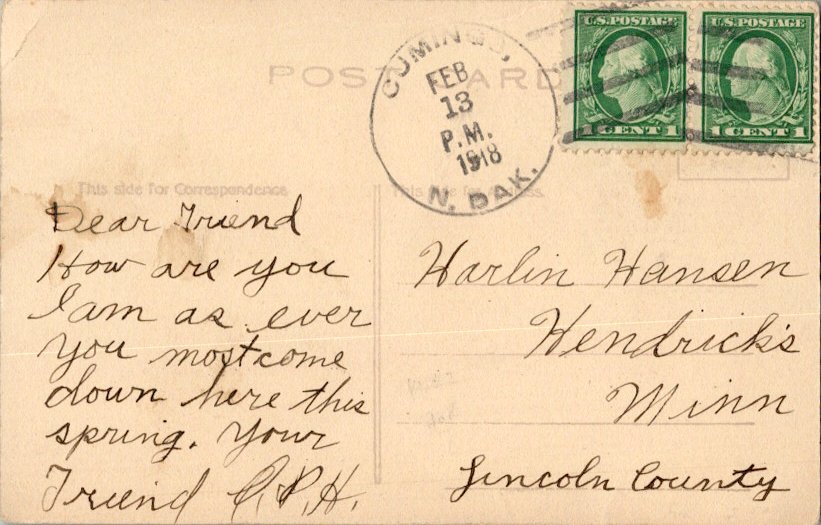 POST CARD
CUMINGS,
FEB
13
P.M.
1918
N. DAK.
U.S. POSTAGE
1 CENT 1
U.S. POSTAGE
1 CENT 1
This side for Correspondence
Dear Friend
How are you
I am as ever
you most come
down here this
spring. Your
Friend C.P.H.
Harlin Hansen
Hendrick's
Minn
Lincoln County